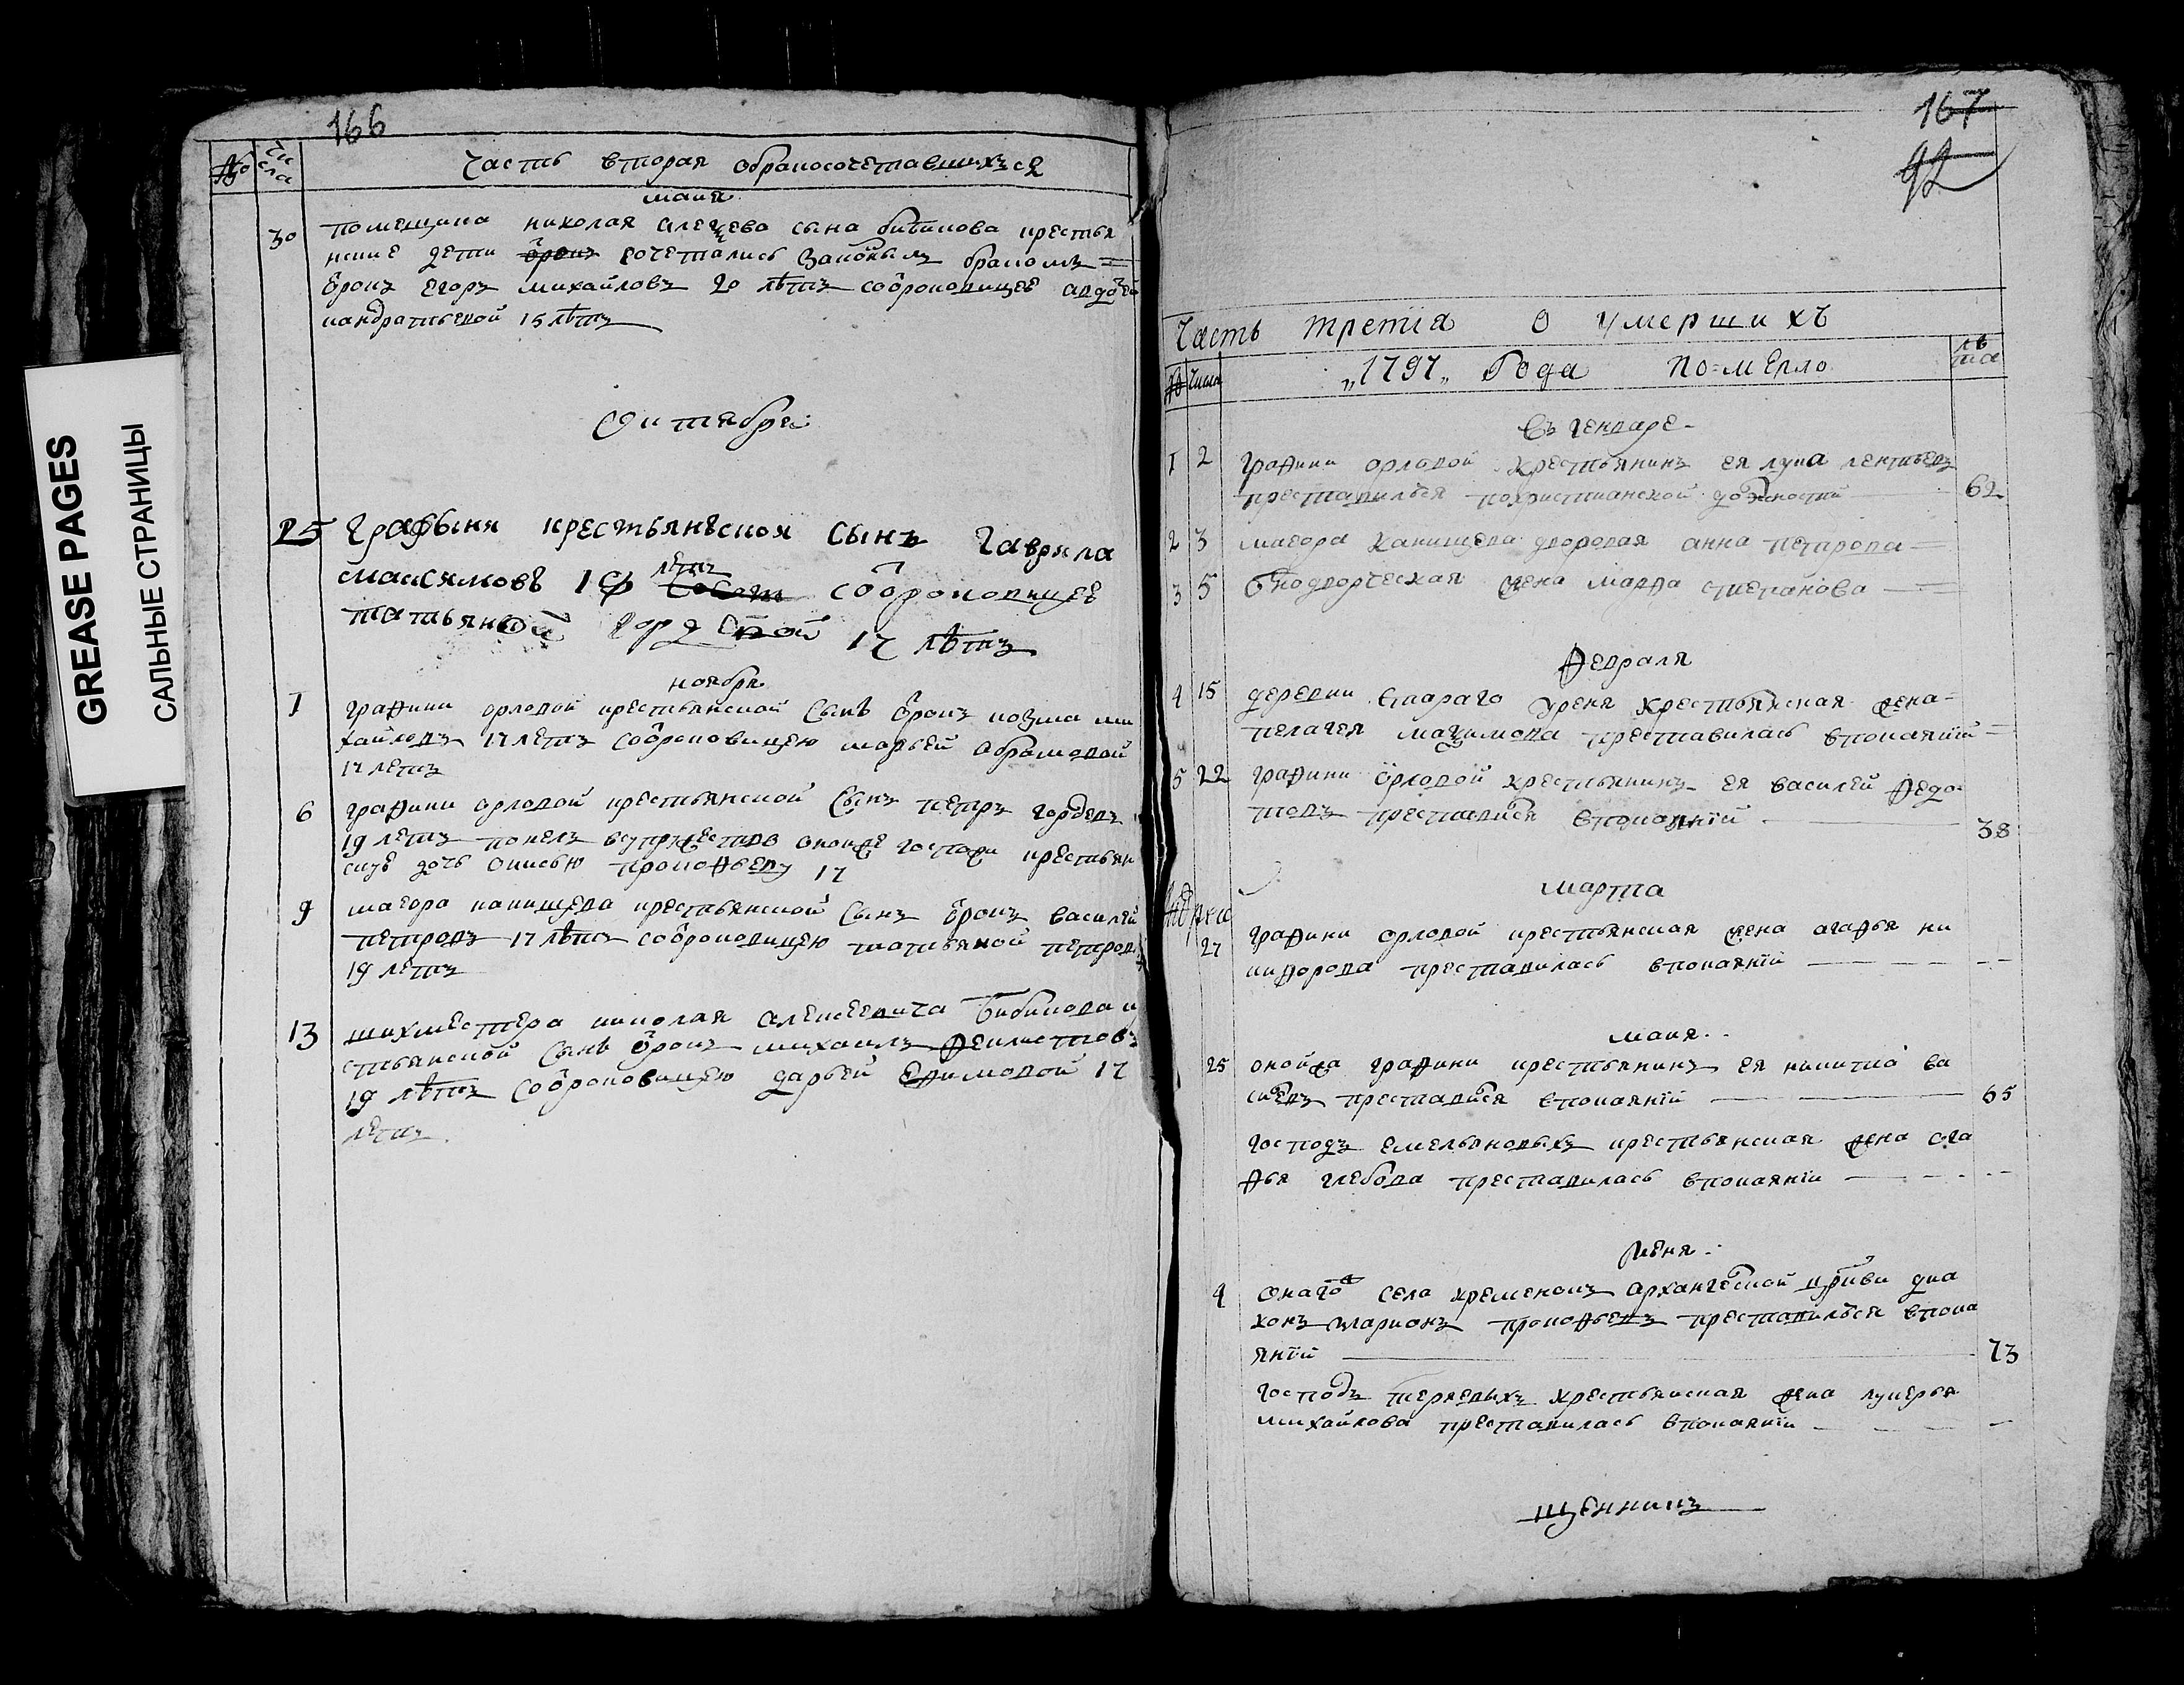 GREASE PAGES
САЛЬНЫЕ СТРАНИЦЫ
166
№ числа
Часть вторая обракосочетавшихъся
маия
30 помещика николая алеѯеева сына бибикова крестья
нские дети отрокъ сочетались законъным бракомъ =
отрокъ егоръ михайловъ 20 лѣтъ сотроковицеѣ авдотей
кандратьевой 15 лѣтъ
октября
25 графыня крестьянъскоя сынъ гаврила
максимовъ летъ сотроковицеѣ
татьяной гордевной 17 лѣтъ
ноября
1 графини орловой крестьянской сынъ отрокъ козма ми
хайловъ 17 летъ сотроковицею марьей абрамовой
17 летъ
6 графини орловой крестьянской сынъ петръ гордеевъ
19 летъ понелъ всупружество оной же госпожи крестьян
скуѣ дочь онисью прокофьеву 17
9 маеора канищева крестьянской сынъ отрокъ василей
петровъ 17 лѣтъ сотроковицею татьяной петровой
19 летъ
13 шихместера николая алексеевича бибикова к
стьянской сынъ отрокъ михаилъ феилистовъ
19 лѣтъ сотроковицею дарьей ефимовой 17
летъ
167
92
Часть третіа о умершихъ
№ числа „1797„ года по=мерло лѣта
въ генваре
1 2 графини орловой крестьянинъ ея лука леѡнтьевъ
преставилься похристианской должности 62
2 3 маеора канищева дворовая анна петрова =
3 5 однодворческая жена марфа степанова =
февраля
4 15 деревни стараго уреня крестьянская жена =
пелагея маѯимова преставилась впокаянии =
5 22 графини орловой крестьянинъ ея василей федо
товъ преставился впокаянии 38
марта
27 графини орловой крестьянская жена агафья ни
кифорова преставилась впокаянии
маия
25 оной жа графини крестьянинъ ея никита ва
сильевъ преставился впокаянии 65
господъ емельяновыхъ крестьянская жена ога
фья глебова преставилась впокаянии
июня
4 онаго села кременокъ архангелской цркви диа
конъ иларионъ прокофьевъ преставилься впока
янии 73
господъ терневыхъ крестьянская жена лукерья
михайлова преставилась впокаянии
щенникъ